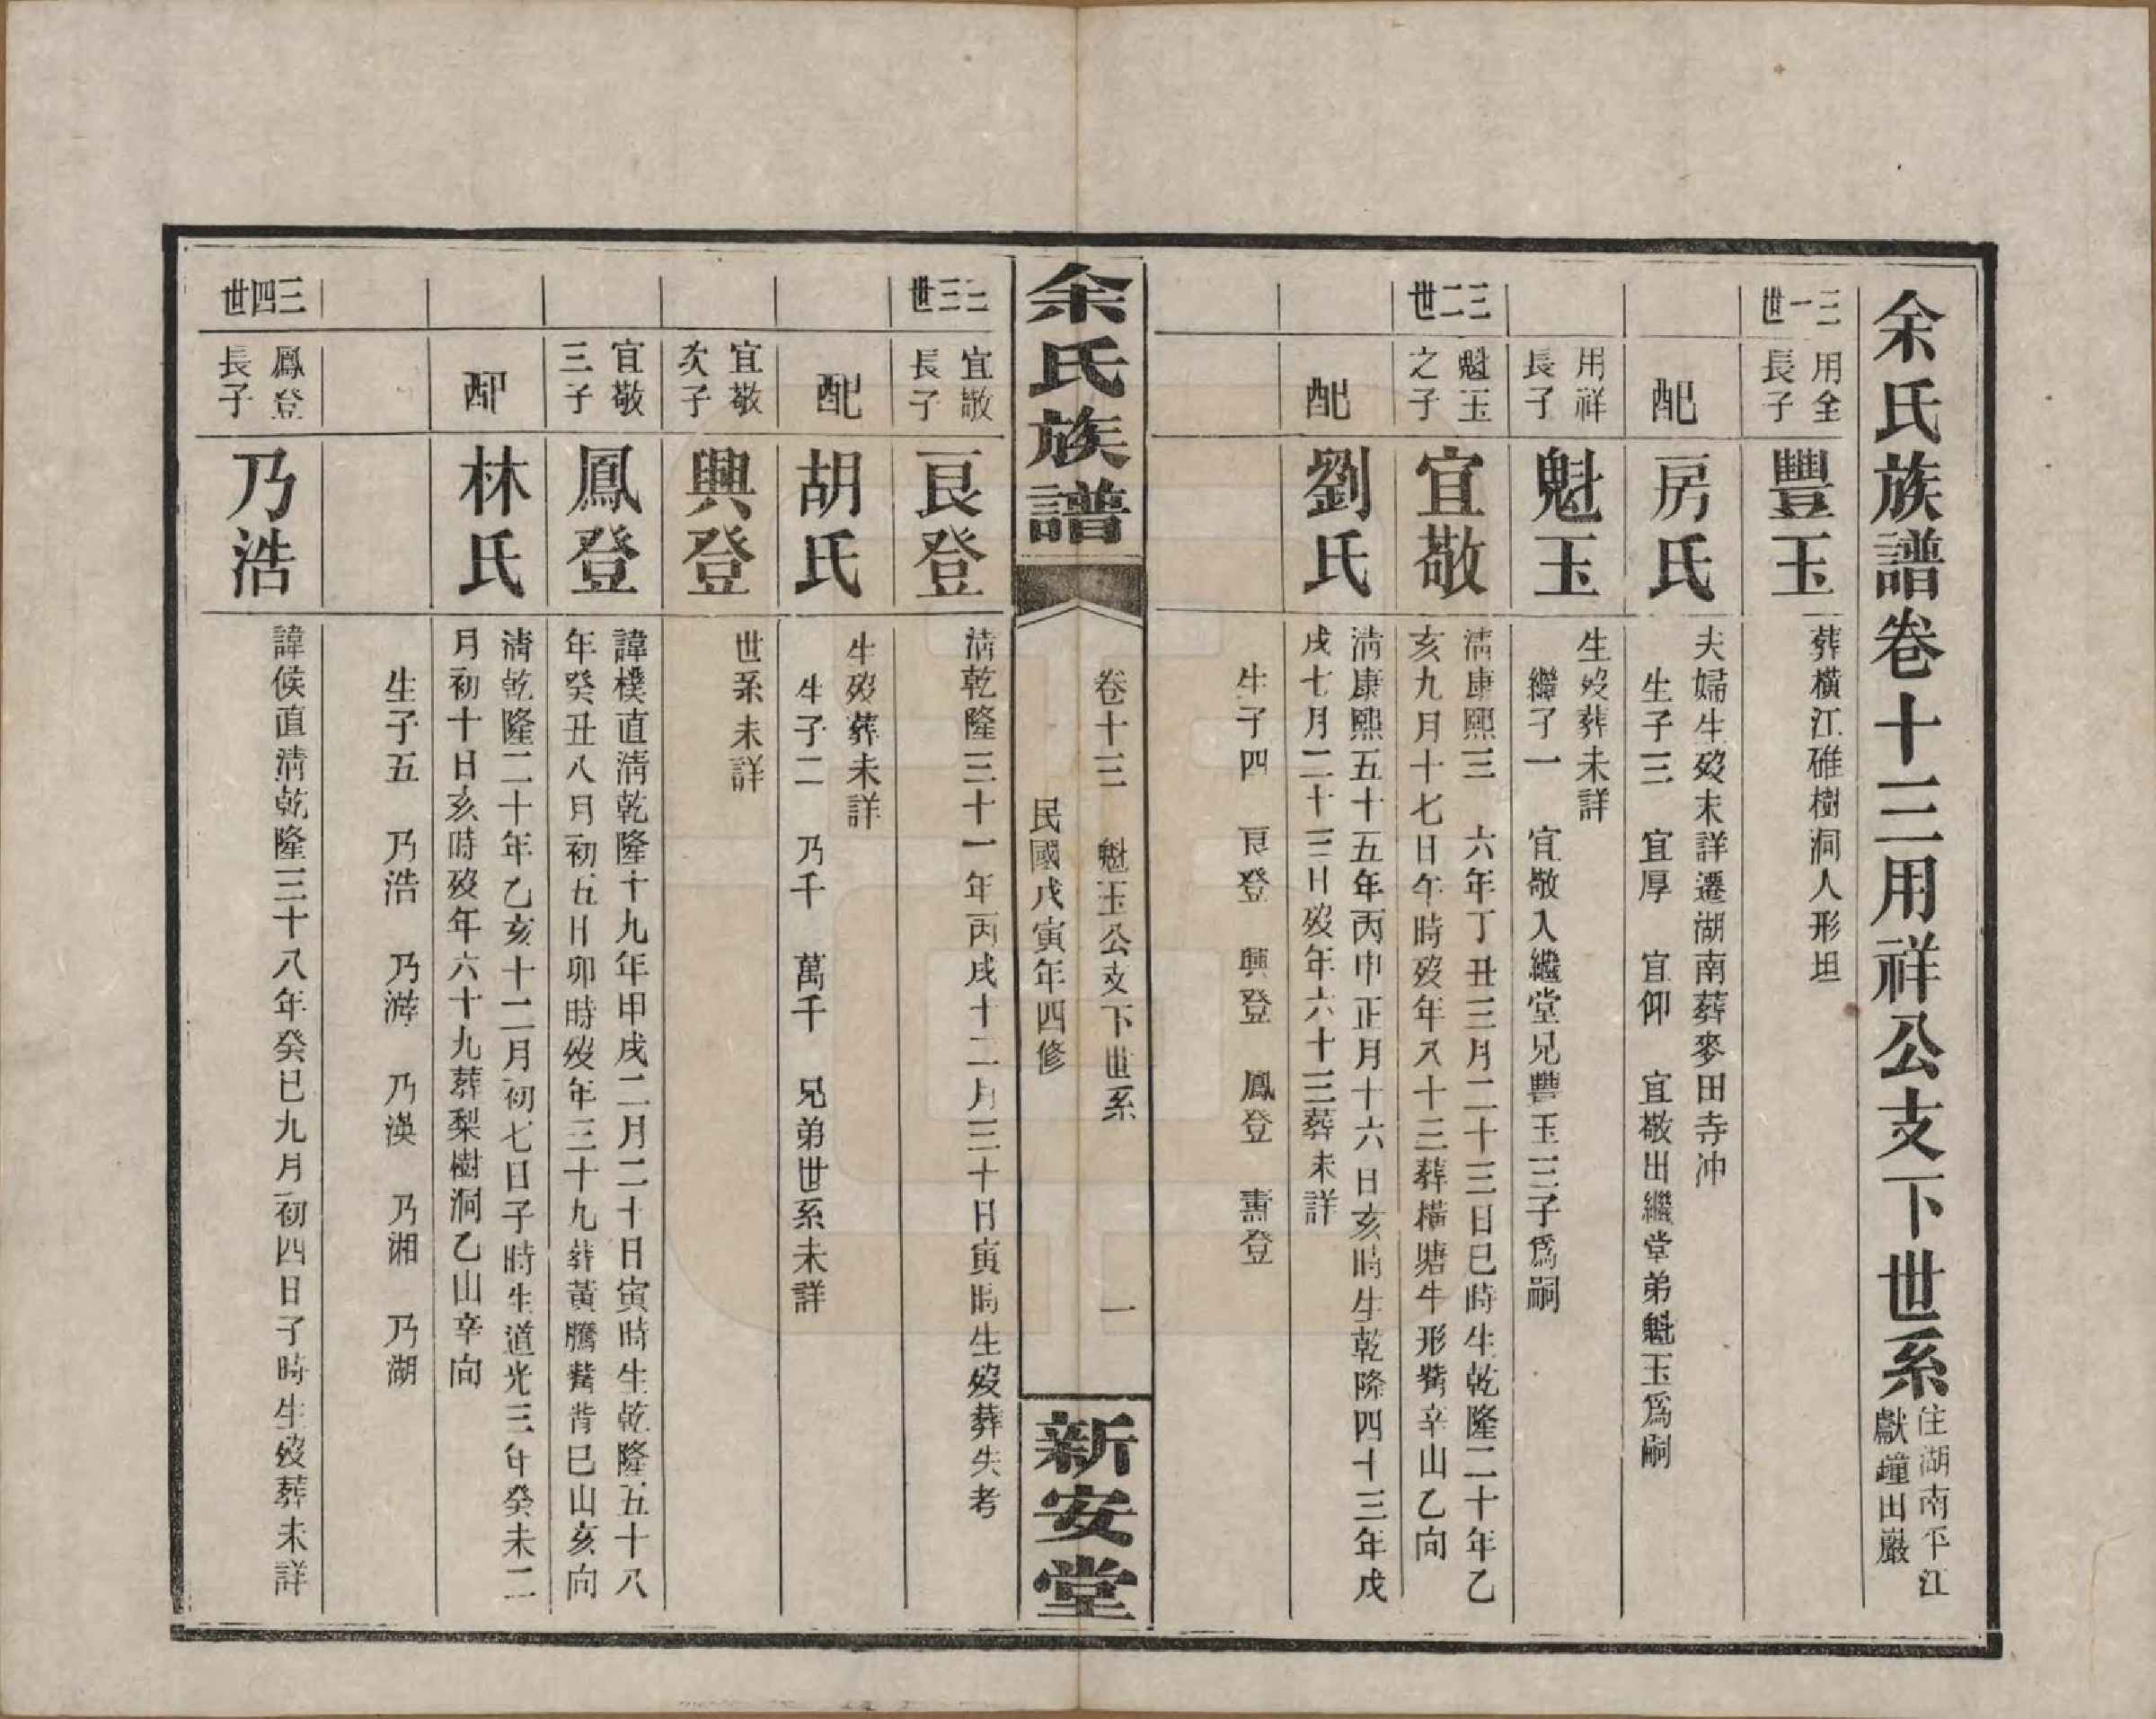 余氏族譜卷十三用祥公支下世系
住湖南平江
獻鐘田巖
三一世
用全
長子
豐玉
葬橫江碓樹洞人形坦
配
房氏
夫婦生歿未詳遷湖南葬麥田寺冲
生子三　宜厚　宜仰　宜敬出繼堂弟魁玉爲嗣
用祥
長子
魁玉
生歿葬未詳
繼子一　宜敬入繼堂兄豐玉三子爲嗣
三二世
魁玉
之子
宜敬
淸康熙三　六年丁丑三月二十三日巳時生乾隆二十年乙
亥九月十七日午時歿年八十三葬橫塘牛形觜辛山乙向
配
劉氏
淸康熙五十五年丙申正月十六日亥時生乾隆四十三年戊
戌七月二十三日歿年六十三葬未詳
生子四　良登　興登　鳳登　壽登
余氏族譜
卷十三　魁玉公支下世系　一
民國戊寅年四修
新安堂
三三世
宜敬
長子
良登
淸乾隆三十一年丙戌十二月三十日寅時生歿葬失考
配
胡氏
生歿葬未詳
生子二　乃千　萬千　兄弟世系未詳
宜敬
次子
興登
世系未詳
宜敬
三子
鳳登
諱樸直淸乾隆十九年甲戌二月二十日寅時生乾隆五十八
年癸丑八月初五日卯時歿年三十九葬黃騰觜背巳山亥向
配
林氏
淸乾隆二十年乙亥十二月初七日子時生道光三年癸未二
月初十日亥時歿年六十九葬梨樹洞乙山辛向
生子五　乃浩　乃滓　乃漢　乃湘　乃湖
三四世
鳳登
長子
乃浩
諱候直淸乾隆三十八年癸巳九月初四日子時生歿葬未詳